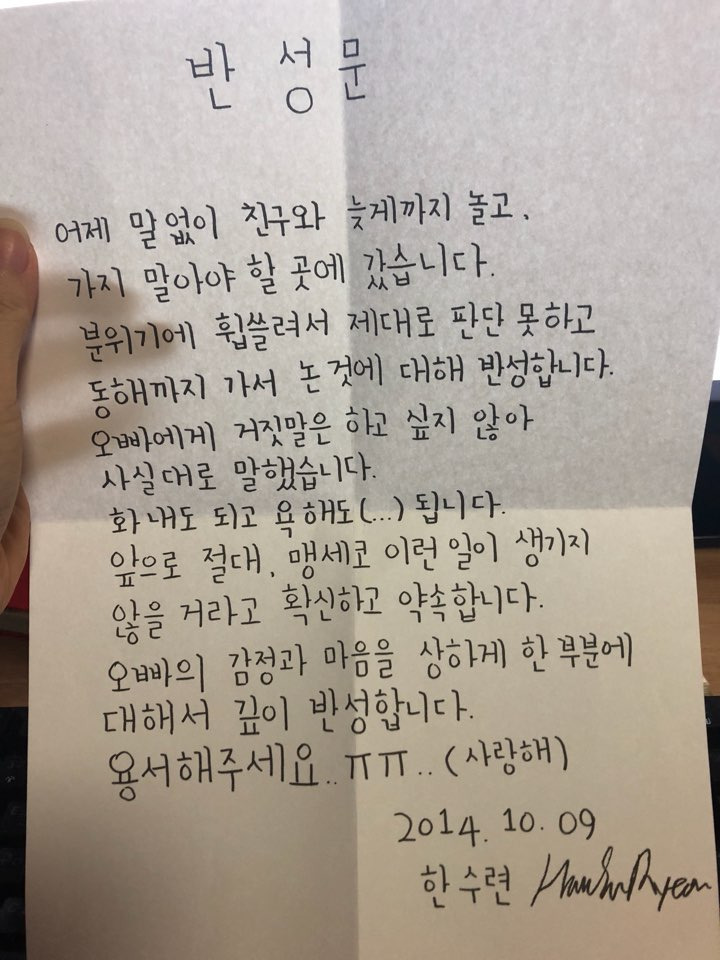 반 성 문
어제 말없이 친구와 늦게까지 놀고,
가지 말아야 할 곳에 갔습니다.
분위기에 휩쓸려서 제대로 판단 못하고
동해까지 가서 논것에 대해 반성합니다.
오빠에게 거짓말은 하고 싶지 않아
사실대로 말했습니다.
화내도 되고 욕해도(...) 됩니다.
앞으로 절대, 맹세코 이런 일이 생기지
않을 거라고 확신하고 약속합니다.
오빠의 감정과 마음을 상하게 한 부분에
대해서 깊이 반성합니다.
용서해주세요..ㅠㅠ..(사랑해)
2014. 10. 09
한 수련 HanSuRyeon